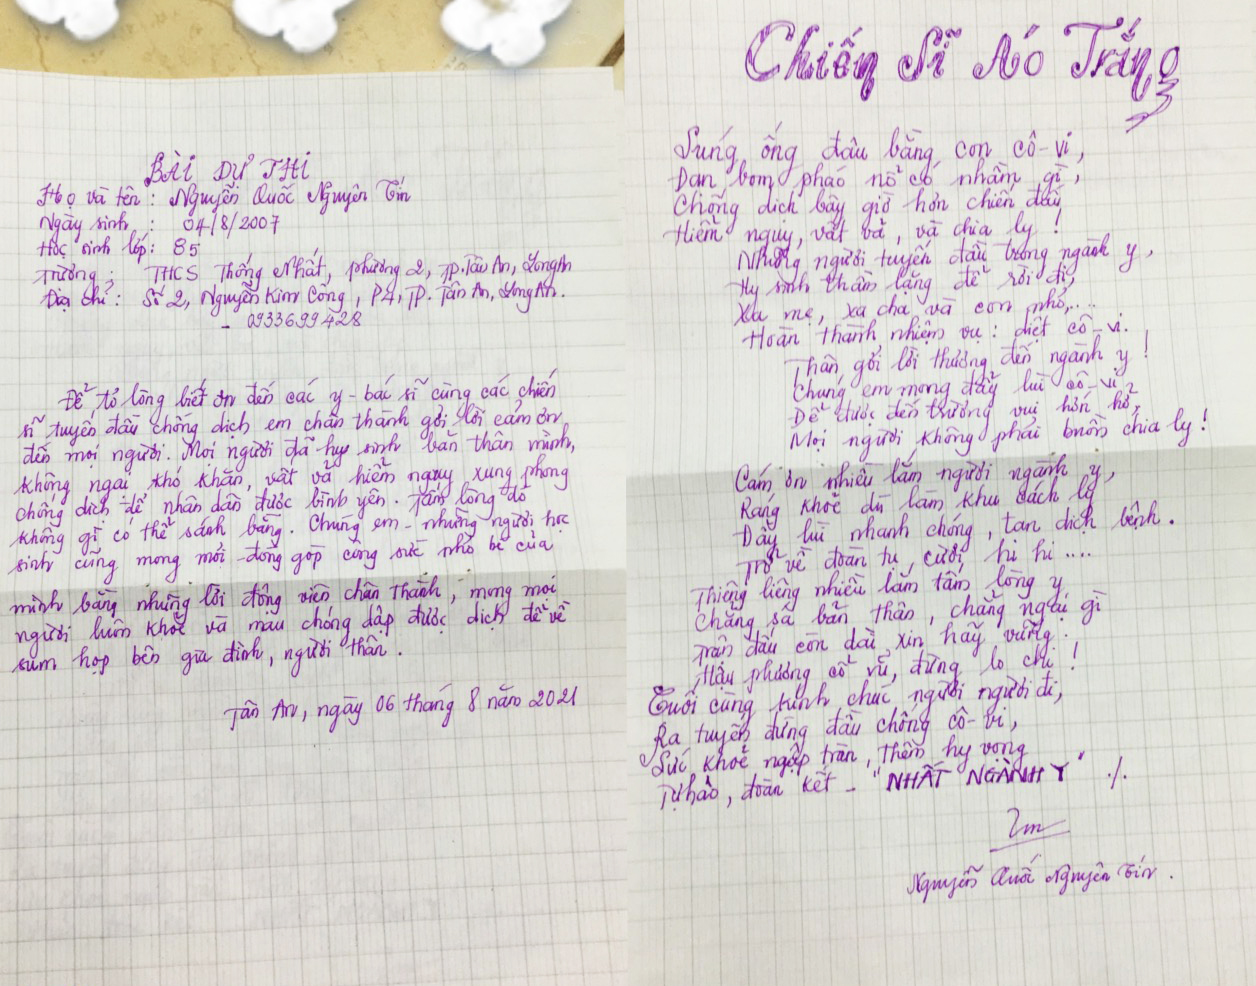 BÀI DỰ THI
Họ và tên : Nguyễn Quốc Nguyên Tín
Ngày sinh : 04/8/2007
Học sinh lớp: 85
Trường : THCS Thống Nhất, phường 2, TP.Tân An, Long An
Địa chỉ : Số 2, Nguyễn Kim Công, P4, TP. Tân An, Long An.
- 0933699428
Để tỏ lòng biết ơn đến các y-bác sĩ cùng các chiến
sĩ tuyến đầu chống dịch em chân thành gởi lời cảm ơn
đến mọi người. Mọi người đã hy sinh bản thân mình,
không ngại khó khăn, vất vả và hiểm nguy xung phong
chống dịch để nhân dân được bình yên. Tấm lòng đó
không gì có thể sánh bằng. Chúng em - những người học
sinh cũng mong mỏi đóng góp công sức nhỏ bé của
mình bằng những lời động viên chân thành, mong mọi
người luôn khoẻ và mau chóng dập được dịch để về
sum họp bên gia đình, người thân.
Tân An, ngày 06 tháng 8 năm 2021
Chiến Sĩ Áo Trắng
Súng ống đâu bằng con cô-vi,
Đạn bom pháo nổ có nhằm gì,
Chống dịch bây giờ hơn chiến đấy
Hiểm nguy, vất vả, và chia ly !
Những người tuyến đầu trong ngành y,
Hy sinh thầm lặng để rồi đi,
Xa mẹ, xa cha và con nhỏ,...
Hoàn thành nhiệm vụ : diệt cô-vi.
Thân gởi lời thương đến ngành y !
Chúng em mong đẩy lùi cô-vi,
Để được đến trường vui hớn hở,
Mọi người không phải buồn chia ly !
Cám ơn nhiều lắm người ngành y,
Ráng khoẻ dù làm khu cách ly
Đẩy lùi nhanh chóng, tan dịch bệnh.
Trở về đoàn tụ, cười hi hi ....
Thiêng liêng nhiều lắm tấm lòng y
Chẳng sá bản thân, chẳng ngại gì
Trận đấu còn dài, xin hãy vững.
Hậu phương cổ vũ, đừng lo chi !
Cuối cùng kính chúc người người đi,
Ra tuyến đứng đầu chống cô-vi,
Sức khoẻ ngập tràn, thêm hy vọng
Tự hào, đoàn kết - "NHẤT NGÀNH Y" ./.
Nguyễn Quốc Nguyên Tín.